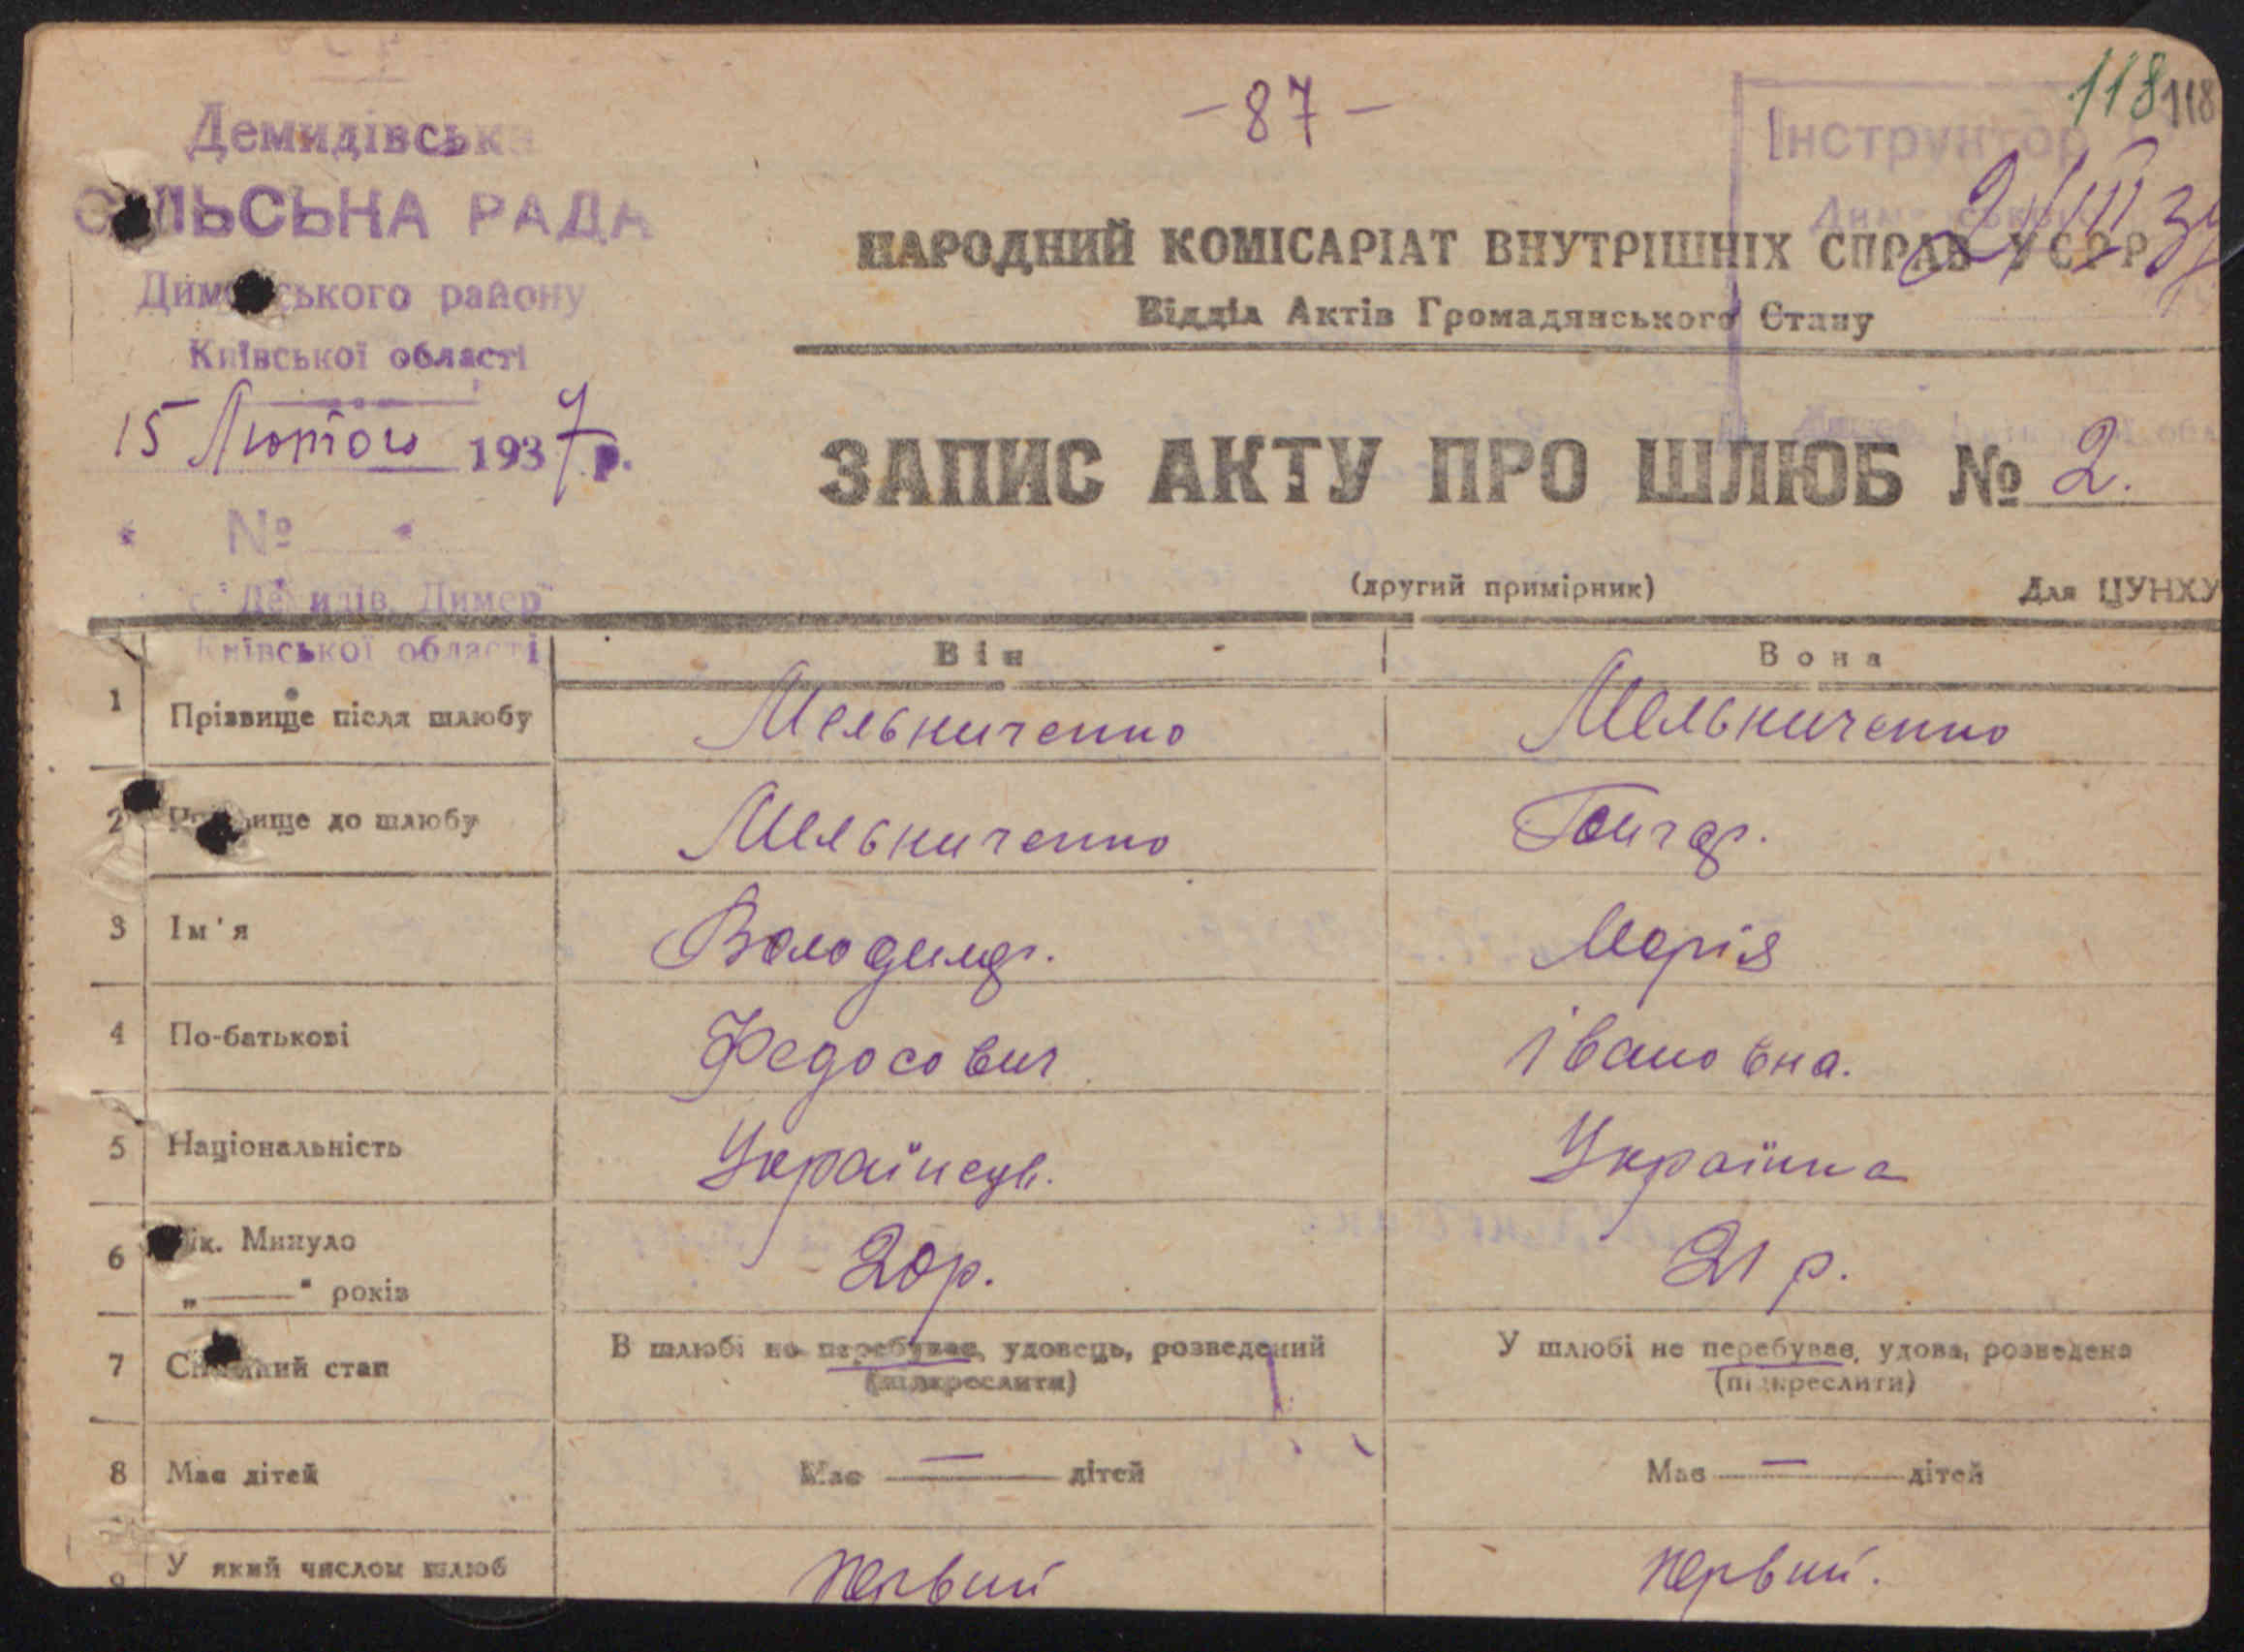 118 118
- 87 -
Демидівська
СІЛЬСЬКА РАДА
Димерського району
Київської області
15 Лютого 1937 р.
№
Київської області
Інструктор
НАРОДНИЙ КОМІСАРІАТ ВНУТРІШНІХ СПРАВ УСРР
Відділ Актів Громадянського Стану
ЗАПИС АКТУ ПРО ШЛЮБ № 2.
(другий примірник) Для ЦУНХУ
Він Вона
1 Прізвище після шлюбу Мельниченко Мельниченко
2 Прізвище до шлюбу Мельниченко Гончар.
3 Ім'я Володимр. Марія
4 По-батькові Федосович Івановна.
5 Національність Українець. Українка
6 Вік. Минуло 20 р. 21 р.
„——" років
7 Сімейний стан В шлюбі не перебував, удовець, розведений У шлюбі не перебуває, удова, розведена
(підкреслити) (підкреслити)
8 Має дітей Має — дітей Має — дітей
9 У який числом шлюб Первий Первий.